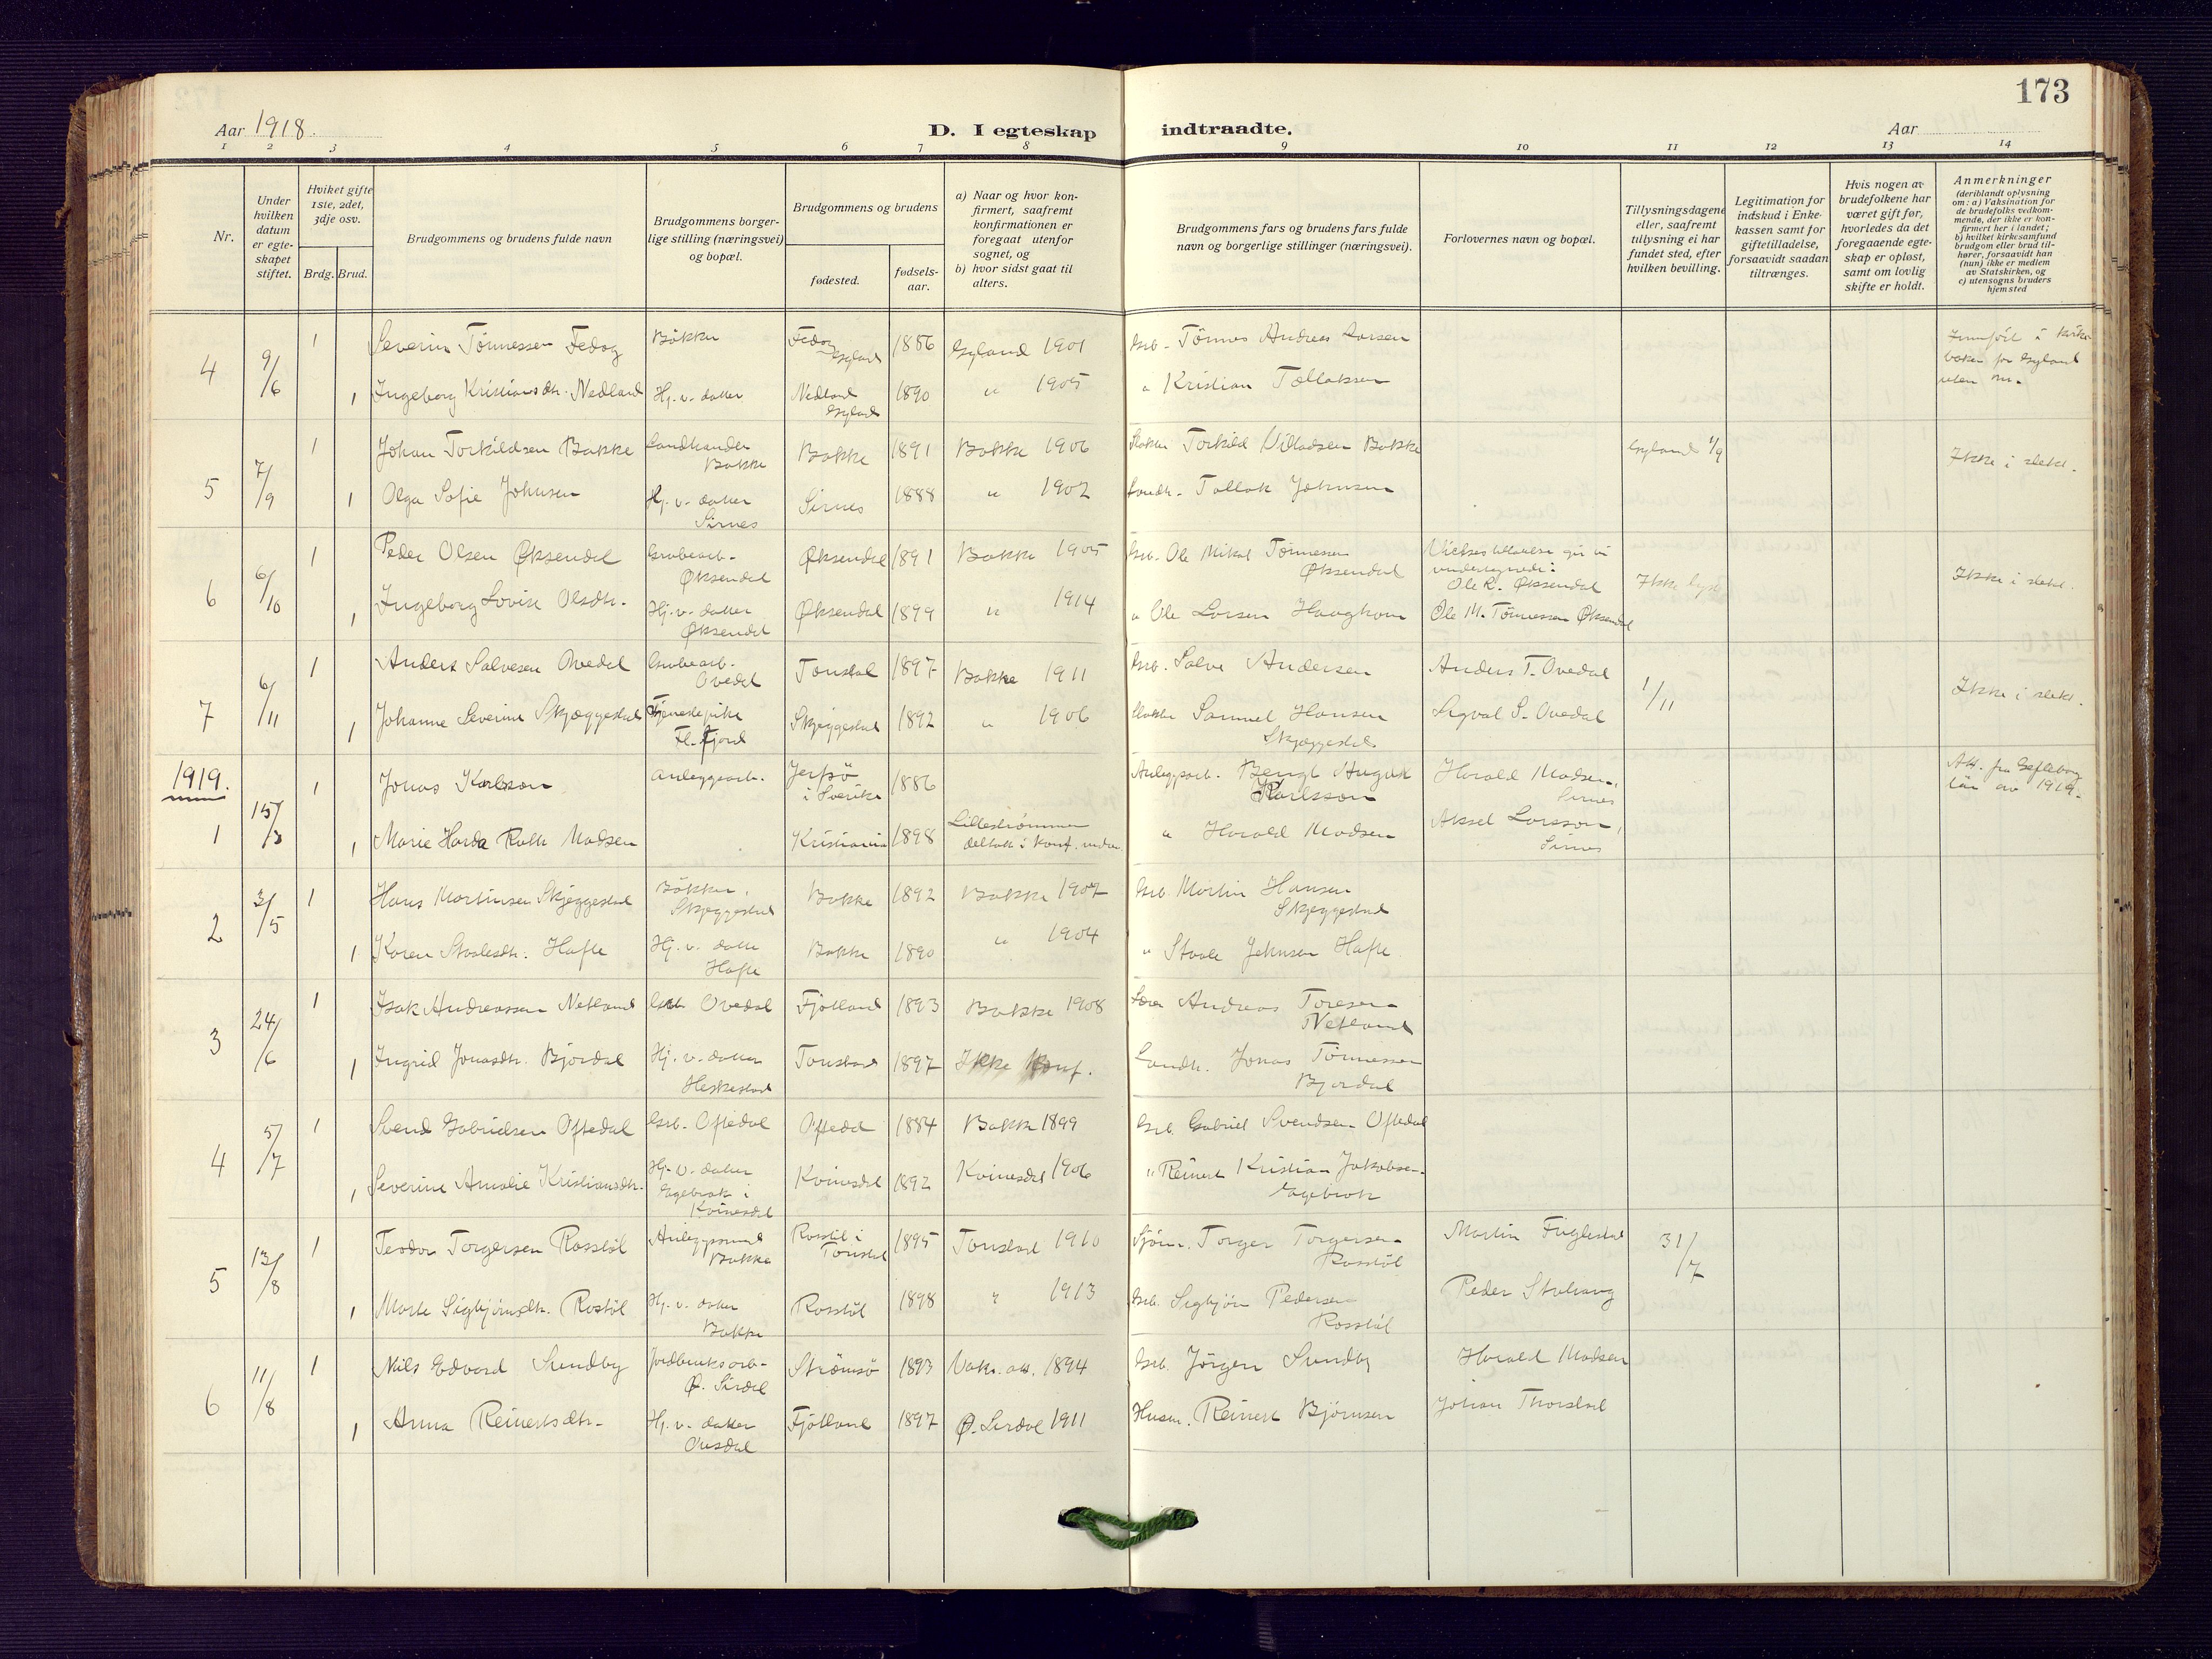 173
Aar 1918.
D. I egteskap indtraadte.
Aar
1 2 3 4 5 6 7 8 9 10 11 12 13 14
Nr.
Under hvilken datum er egteskapet stiftet.
Hviket gifte 1ste, 2det, 3dje osv.
Brdg. Brud.
Brudgommens og brudens fulde navn
Brudgommens borgerlige stilling (næringsvei) og bopæl.
Brudgommens og brudens
fødested.
fødselsaar.
a) Naar og hvor konfirmert, saafremt konfirmationen er foregaat utenfor sognet, og
b) hvor sidst gaat til alters.
Brudgommens fars og brudens fars fulde navn og borgerlige stillinger (næringsvei).
Forlovernes navn og bopæl.
Tillysningsdagene eller, saafremt tillysning ei har fundet sted, efter hvilken bevilling.
Legitimation for indskud i Enkekassen samt for giftetilladelse, forsaavidt saadan tiltrænges.
Hvis nogen av brudefolkene har været gift før, hvorledes da det foregaaende egteskap er opløst, samt om lovlig skifte er holdt.
Anmerkninger
(deriblandt oplysning om: a) Vaksination for de brudefolks vedkommende, der ikke er konfirmert her i landet;
b) hvilket kirkesamfund brudgom eller brud tilhører, forsaavidt han (hun) ikke er medlem av Statskirken, og
c) utensogns bruders hjemsted
4 9/6 1 Severin Tönnessen Fedog Bökker Fedog Gyland 1886 Gyland 1901 Grb. Tönnes Andreas Larsen
1 Ingeborg Kristiansdtr. Nedland Hj. v. datter Nedland Gyland 1890 " 1905 " Kristian Tollaksen
Innfört i kirkeboken for Gyland uten nr.
5 7/9 1 Johan Torkildsen Bakke Landhandler Bakke Bakke 1891 Bakke 1906 Torkild Villadsen Bakke Gyland 1/9 Ikke i slekt.
1 Olga Sofie Johnsen Hj. v. datter Sirnes Sirnes 1888 " 1902 Landh. Tollak Johnsen
6 6/10 1 Peder Olsen Øksendal Grubearb. Øksendal Øksendal 1891 Bakke 1905 Grb. Ole Mikal Tönnessen Øksendal
undertegnede: Ole R. Øksendal Ikke lyst Ikke i slekt.
1 Ingeborg Lovise Olsdtr. Hj. v. datter Øksendal Øksendal 1899 " 1914 " Ole Larsen Haughom Ole M. Tönnessen Øksendal
7 6/11 1 Anders Salvesen Ovedal Grubearb. Ovedal Tonstad 1897 Bakke 1911 Grb. Salve Andersen Anders T. Ovedal 1/11 Ikke i slekt.
1 Johanne Severine Skjæggestad Tjenestepike Fl. Fjord Skjeggestad 1892 " 1906 Samuel Hansen Skjæggestad Sigval S. Ovedal
1919.
1 15/3 1 Jonas Karlsson Anleggsarb. Jerfsö i Sverike 1886 Anleggsarb. Bengt August Karlsson Harald Madsen, Sirnes
Att. fra Gefleborg län av 1919.
1 Marie Harda Ruth Madsen Kristiania 1898 Lillestrømmen deltok i konf. underv. " Harald Madsen Aksel Larsson, Sirnes
2 3/5 1 Hans Martinsen Skjeggestad Bökker, Skjeggestad Bakke 1892 Bakke 1907 Grb. Martin Hansen Skjeggestad
1 Karen Staalesdtr. Hafte Hj. v. datter Hafte Bakke 1890 " 1904 " Staale Johnsen Hafte
3 24/6 1 Isak Andreassen Netland Grb. Ovedal Fjotland 1893 Bakke 1908 Lærer Andreas Toresen Netland
1 Ingrid Jonasdtr. Bjordal Hj. v. datter Heskestad Tonstad 1897 Ikke konf. Landh. Jonas Tönnessen Bjordal
4 5/7 1 Svend Gabrielsen Oftedal Grb. Oftedal Oftedal 1884 Bakke 1899 Grb. Gabriel Svendsen Oftedal
1 Severine Amalie Kristiansdtr. Hj. v. datter Egebrok i Kvinesdal Kvinesdal 1892 Kvinesdal 1906 " Reinert Kristian Jakobsen Egebrok
5 13/8 1 Teodor Torgersen Rosstöl Anleggsmand Bakke Rosstöl i Tonstad 1895 Tonstad 1910 Sjöm. Torger Torgersen Rosstöl Martin Fuglestad 31/7
1 Marte Sigbjörnsdtr. Rostöl Hj. v. datter Bakke Rosstöl 1898 " 1913 Grb. Sigbjörn Pedersen Rosstöl Peder
6 11/8 1 Nils Edvard Sundby Jordbruksarb. Ø. Sirdal Strömsö 1893 Vaks. att. 1894 Grb. Jörgen Sundby Harald Madsen
1 Anna Reinertsdtr. Hj. v. datter Ousdal Fjotland 1897 Ø. Sirdal 1911 Husm. Reinert Björnsen Johan Thorstad